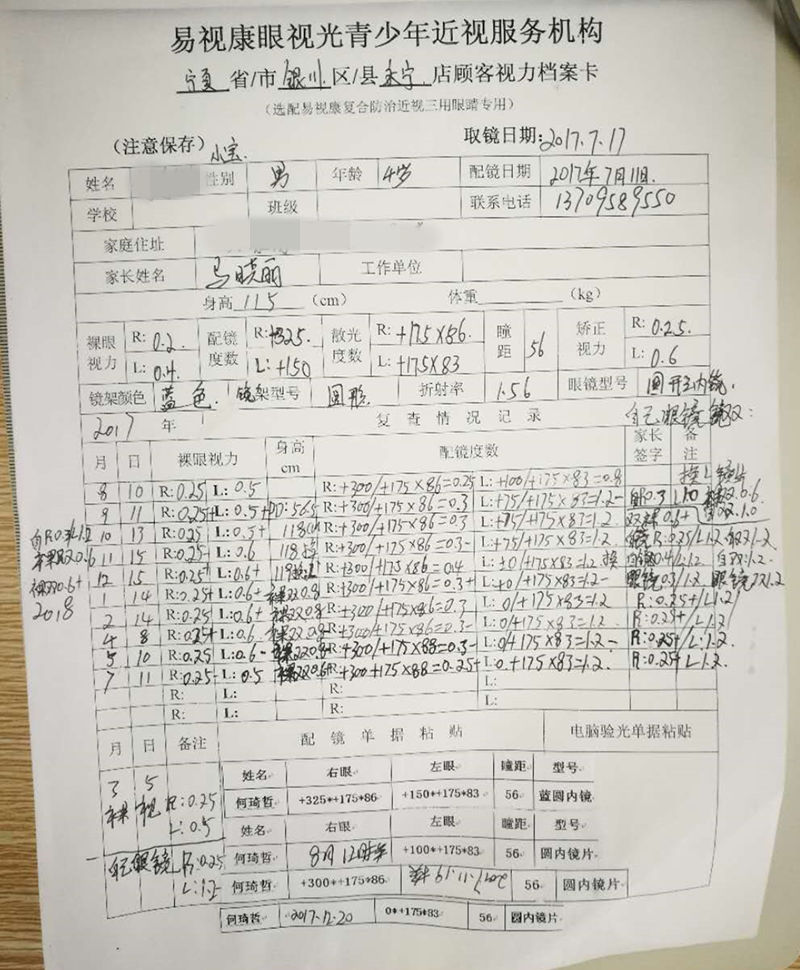 易视康眼视光青少年近视服务机构
宁夏 省/市 银川 区/县 永宁 店顾客视力档案卡
(选配易视康复合防治近视三用眼睛专用)
(注意保存) 取镜日期: 2017.7.17
小宝
姓名 性别 男 年龄 4岁 配镜日期 2017年7月11日.
学校 班级 联系电话 13709589550
家庭住址
家长姓名 马晓丽 工作单位
身高 115 (cm) 体重 (kg)
裸眼视力 R: 0.2. L: 0.4. 配镜度数 R: +325. L: +150 散光度数 R: +175X86. L: +175X83 瞳距 56 矫正视力 R: 0.25. L: 0.6
镜架颜色 蓝色. 镜架型号 圆形. 折射率 1.56 眼镜型号 圆形内镜.
2017 年 复查情况记录 自己眼镜
月 日 裸眼视力 身高cm 配镜度数 家长签字 备注
8 10 R:0.25 L:0.5 R:+300/+175×86=0.25 L:+100/+175×83=0.8
9 11 R:0.25+ L:0.5+ PD:56.5 R:+300/+175×86=0.3 L:+75/+175×83=1.2-
10 13 R:0.25 L:0.5+ 118 R:+300/+175×86=0.3 L:+75/+175×83=1.2.
11 15 R:0.25 L:0.6 118 R:+300/+175×86=0.3- L:+75/+175×83=1.2
12 15 R:0.25+ L:0.6+ R:+300/+175×86=0.4 L:±0/+175×83=1.2 换
1 14 R:0.25+ L:0.6+ R:+300/+175×86=0.3+ L:+0/+175×83=1.2-
2018
2 14 R:0.25 L:0.6+ R:+300/+175×86=0.3 L:0/+175×83=1.2 R:0.25+/L1.2
4 8 R:0.25+ L:0.6 R:+300/+175×83=0.3- L:0/+175×83=1.2 R:0.25+/L1.2
5 10 R:0.25 L:0.6- R:+300/+175×88=0.3- L:0/+175×83=1.2- R:0.25/L:1.2
7 11 R:0.25- L:0.5 R:+300+175×88=0.25+ L:0+175×83=1.2. R:0.25+L1.2
R: L: R: L:
R: L: R: L:
月 日 备注 配镜单据粘贴 电脑验光单据粘贴
姓名 右眼 左眼 瞳距 型号
5 R:0.25 L:0.5
何琦哲 +325*+175*86 +150*+175*83 56 蓝圆内镜
姓名 右眼 左眼 瞳距 型号
自己眼镜 R:0.25 L:1.2
何琦哲 8月12日 +100*+175*83 56 圆内镜片
何琦哲 +300*+175*86 56 圆内镜片
何琦哲 2017.12.20 0*+175*83 56 圆内镜片